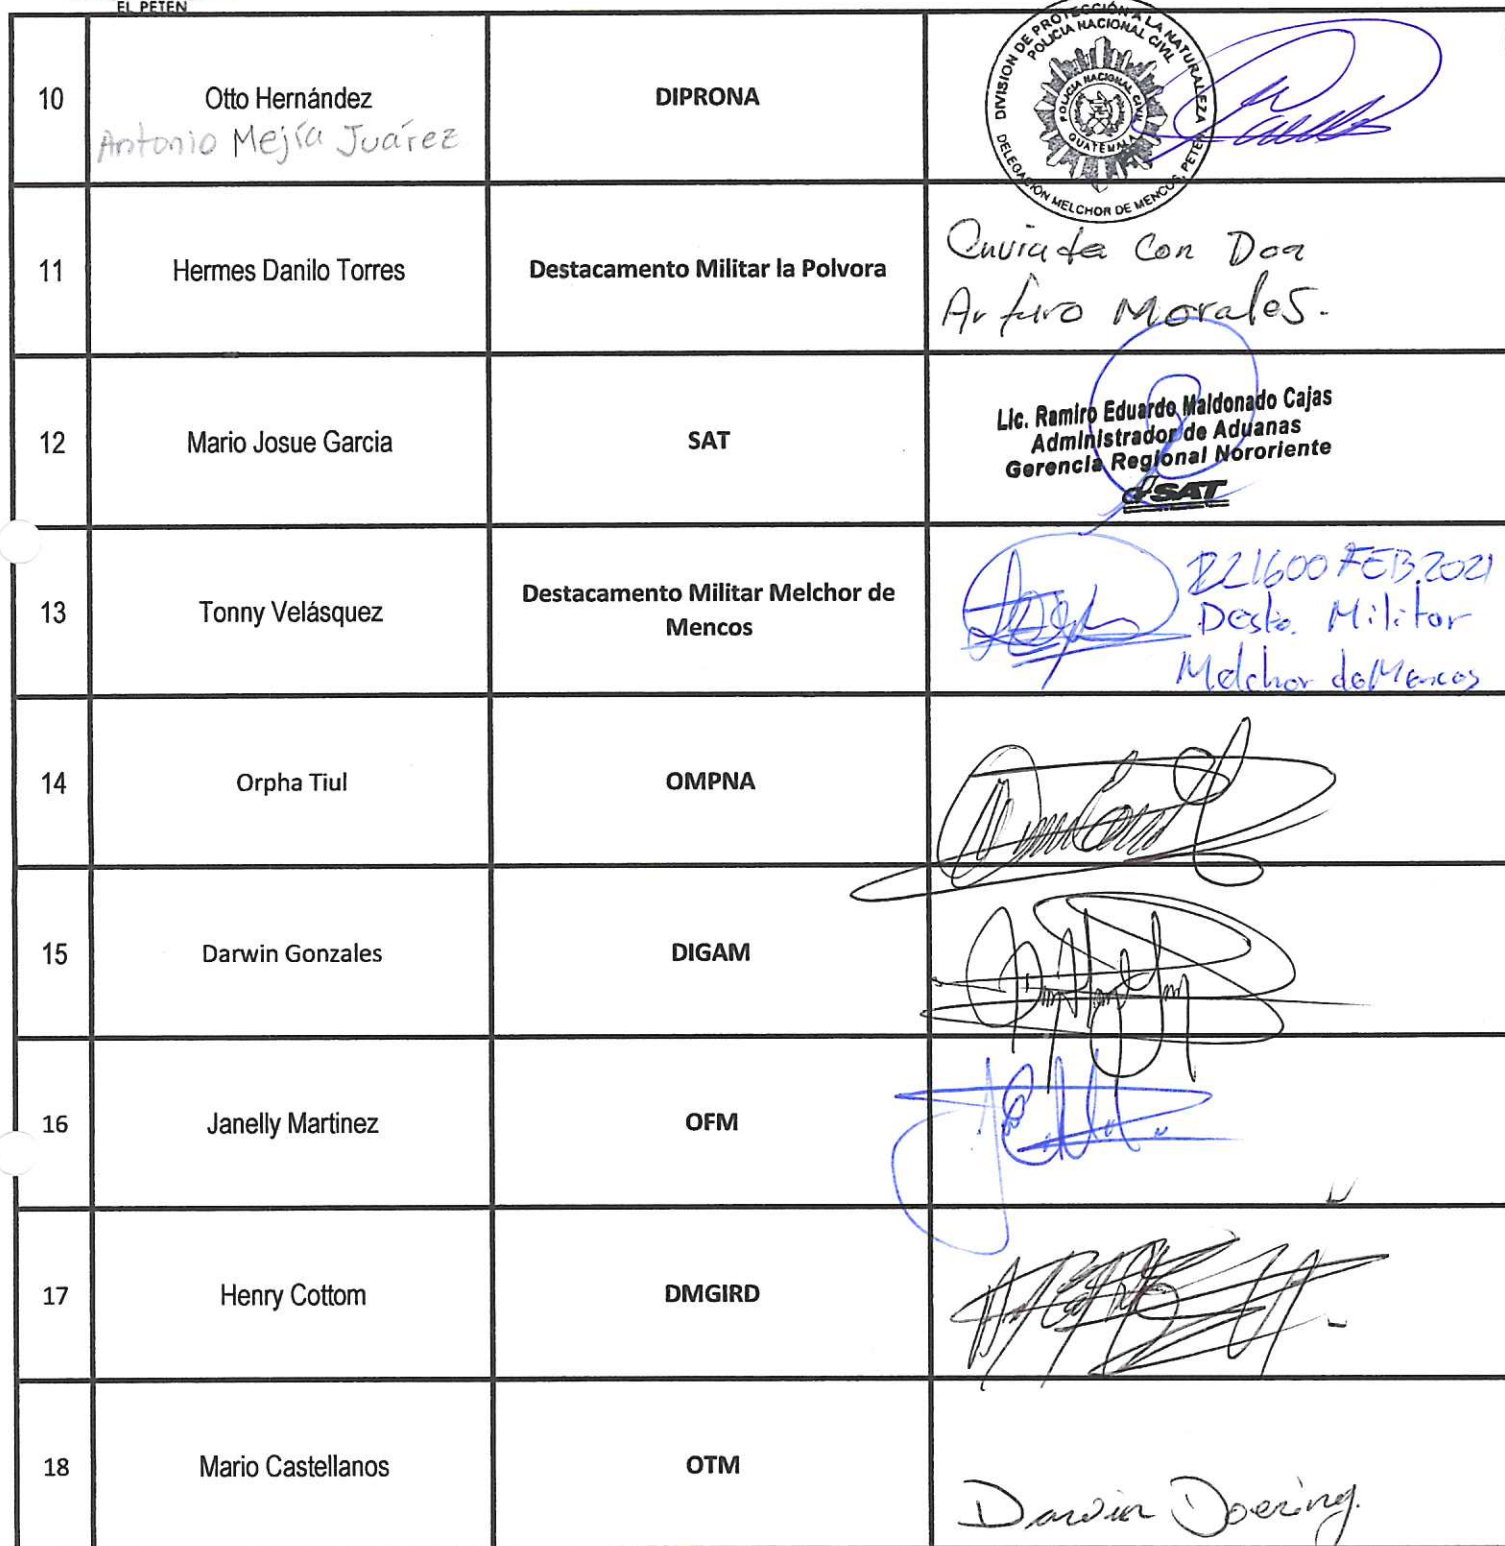 EL PETEN
10
Otto Hernández
Antonio Mejía Juárez
DIPRONA
DIVISION DE PROTECCIÓN A LA NATURALEZA
POLICIA NACIONAL CIVIL
POLICIA NACIONAL CIVIL
GUATEMALA
DELEGACION MELCHOR DE MENCOS, PETEN
11
Hermes Danilo Torres
Destacamento Militar la Polvora
Enviada Con Don
Arturo Morales.
12
Mario Josue Garcia
SAT
Lic. Ramiro Eduardo Maldonado Cajas
Administrador de Aduanas
Gerencia Regional Nororiente
SAT
13
Tonny Velásquez
Destacamento Militar Melchor de
Mencos
221600 FEB 2021
Desto. Militar
Melchor de Mencos
14
Orpha Tiul
OMPNA
15
Darwin Gonzales
DIGAM
16
Janelly Martinez
OFM
17
Henry Cottom
DMGIRD
18
Mario Castellanos
OTM
Darwin Doering.